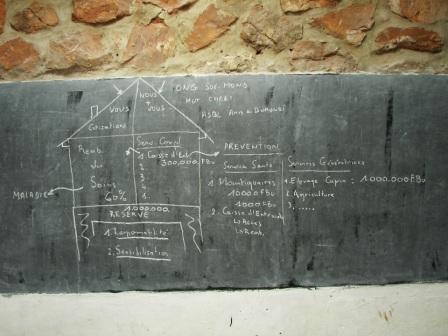 VOUS
NOUS
+
VOUS
Cotisations
ONG SOL-MOND
MUT
ASBL Amis du Burundi
Remb.
du
Soins
60%
MALADIE
Serv. Compl
1. Caisse d'Ent
300.000 FBU
2.
3.
4.
1.000.000
RESERVE
1. Responsabilité
2. Sensibilisation
PREVENTION
Services Santé
1. Moustiquaires
1000 FBU
1000 FBU
2. Caisse d'Entraide
↳ Accès
↳ Remb.
Services Générateurs
1. Elevage Caprin : 1.000.000 FBU
2. Agriculture
3. .....